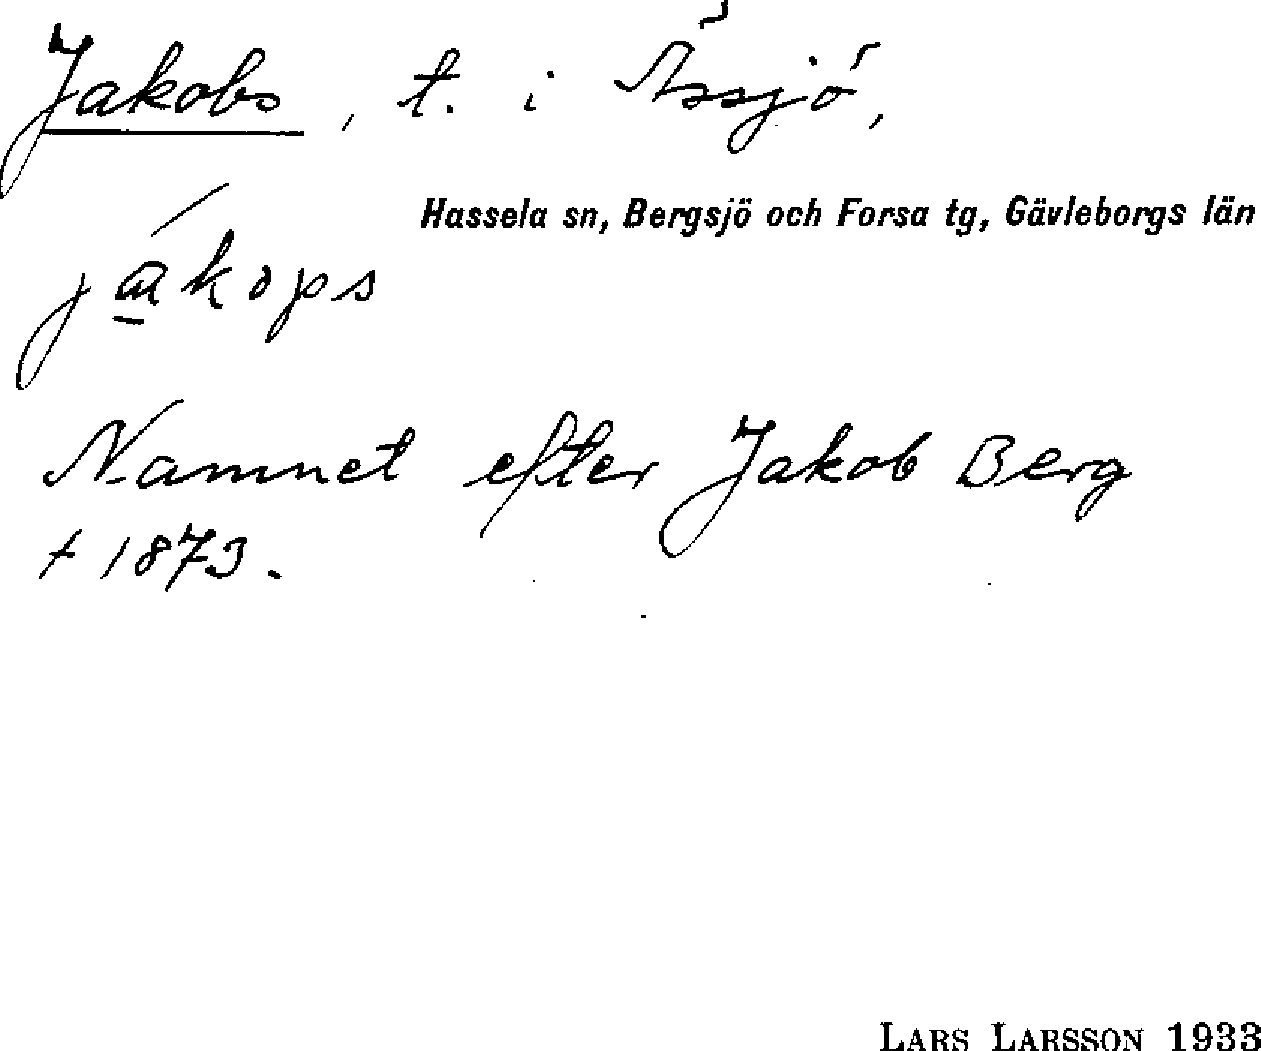 Jakobs, t. i Ässjö,
Hassela sn, Bergsjö och Forsa tg, Gävleborgs län
jákops
Namnet efter Jakob Berg
† 1873.
LARS LARSSON 1933